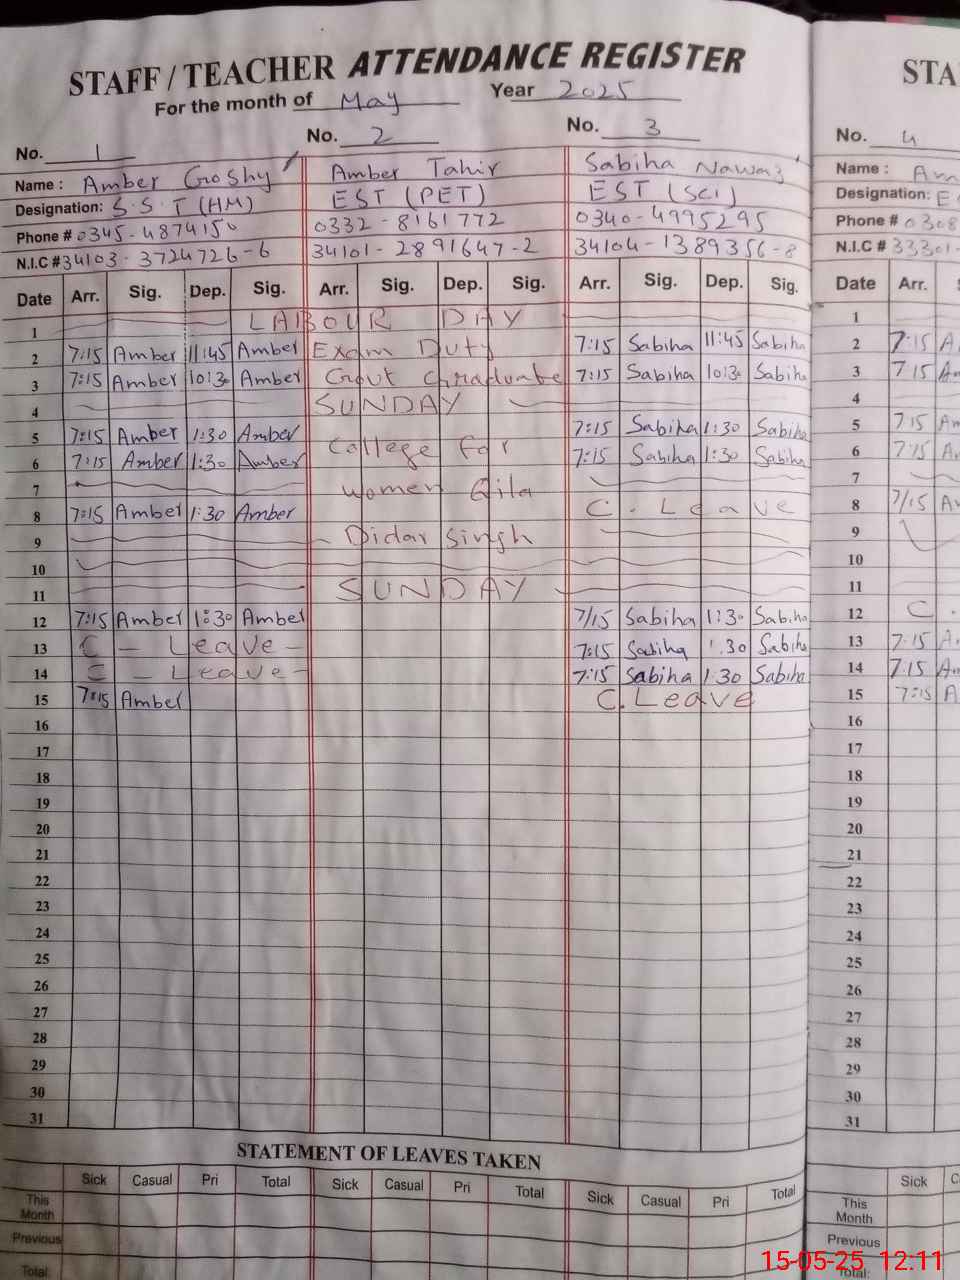 STAFF / TEACHER ATTENDANCE REGISTER
For the month of May Year 2025
No. 1 No. 2 No. 3
Name : Amber Goshy Amber Tahir Sabiha Nawaz
Designation: S.S.T (HM) EST (PET) EST (SCI)
Phone # 0345-4874150 0332-8161772 0340-4995295
N.I.C # 34103-3724726-6 34101-2891647-2 34104-1389356-8
Date Arr. Sig. Dep. Sig. Arr. Sig. Dep. Sig. Arr. Sig. Dep. Sig.
1 LABOUR DAY
2 7:15 Amber 11:45 Amber Exam Duty 7:15 Sabiha 11:45 Sabiha
3 7:15 Amber 10:30 Amber Govt Graduate 7:15 Sabiha 10:30 Sabiha
4 SUNDAY
5 7:15 Amber 1:30 Amber College For 7:15 Sabiha 1:30 Sabiha
6 7:15 Amber 1:30 Amber 7:15 Sabiha 1:30 Sabiha
7 Women Qila
8 7:15 Amber 1:30 Amber C. Leave
9 Didar Singh
10
11 SUNDAY
12 7:15 Amber 1:30 Amber 7/15 Sabiha 1:30 Sabiha
13 C - Leave - 7:15 Sabiha 1.30 Sabiha
14 C - Leave - 7:15 Sabiha 1:30 Sabiha
15 7:15 Amber C. Leave
16
17
18
19
20
21
22
23
24
25
26
27
28
29
30
31
STATEMENT OF LEAVES TAKEN
Sick Casual Pri Total Sick Casual Pri Total Sick Casual Pri Total
This Month
Previous
Total:
STA
No. 4
Name : Am
Designation: E
Phone # 0308
N.I.C # 33301-
Date Arr.
1
2 7:15 A
3 7:15 Am
4
5 7:15 Am
6 7:15 A
7
8 7/15 A
9
10
11
12 C.
13 7:15 A
14 7:15 Am
15 7:15 A
16
17
18
19
20
21
22
23
24
25
26
27
28
29
30
31
Sick C
This Month
Previous
Total:
15-05-25 12:11